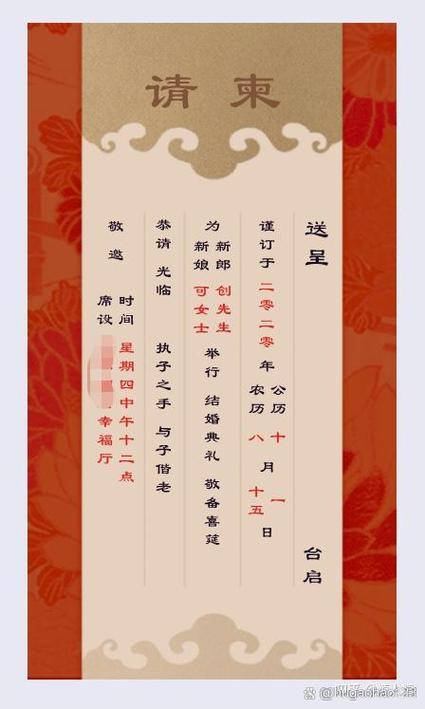 请柬
送呈 台启
谨订于二零二零年 公历十月一日 农历八月十五日
为 新郎创先生 新娘可女士 举行 结婚典礼 敬备喜筵
恭请 光临 执子之手 与子偕老
敬邀
时间 星期四中午十二点
席设 幸福厅